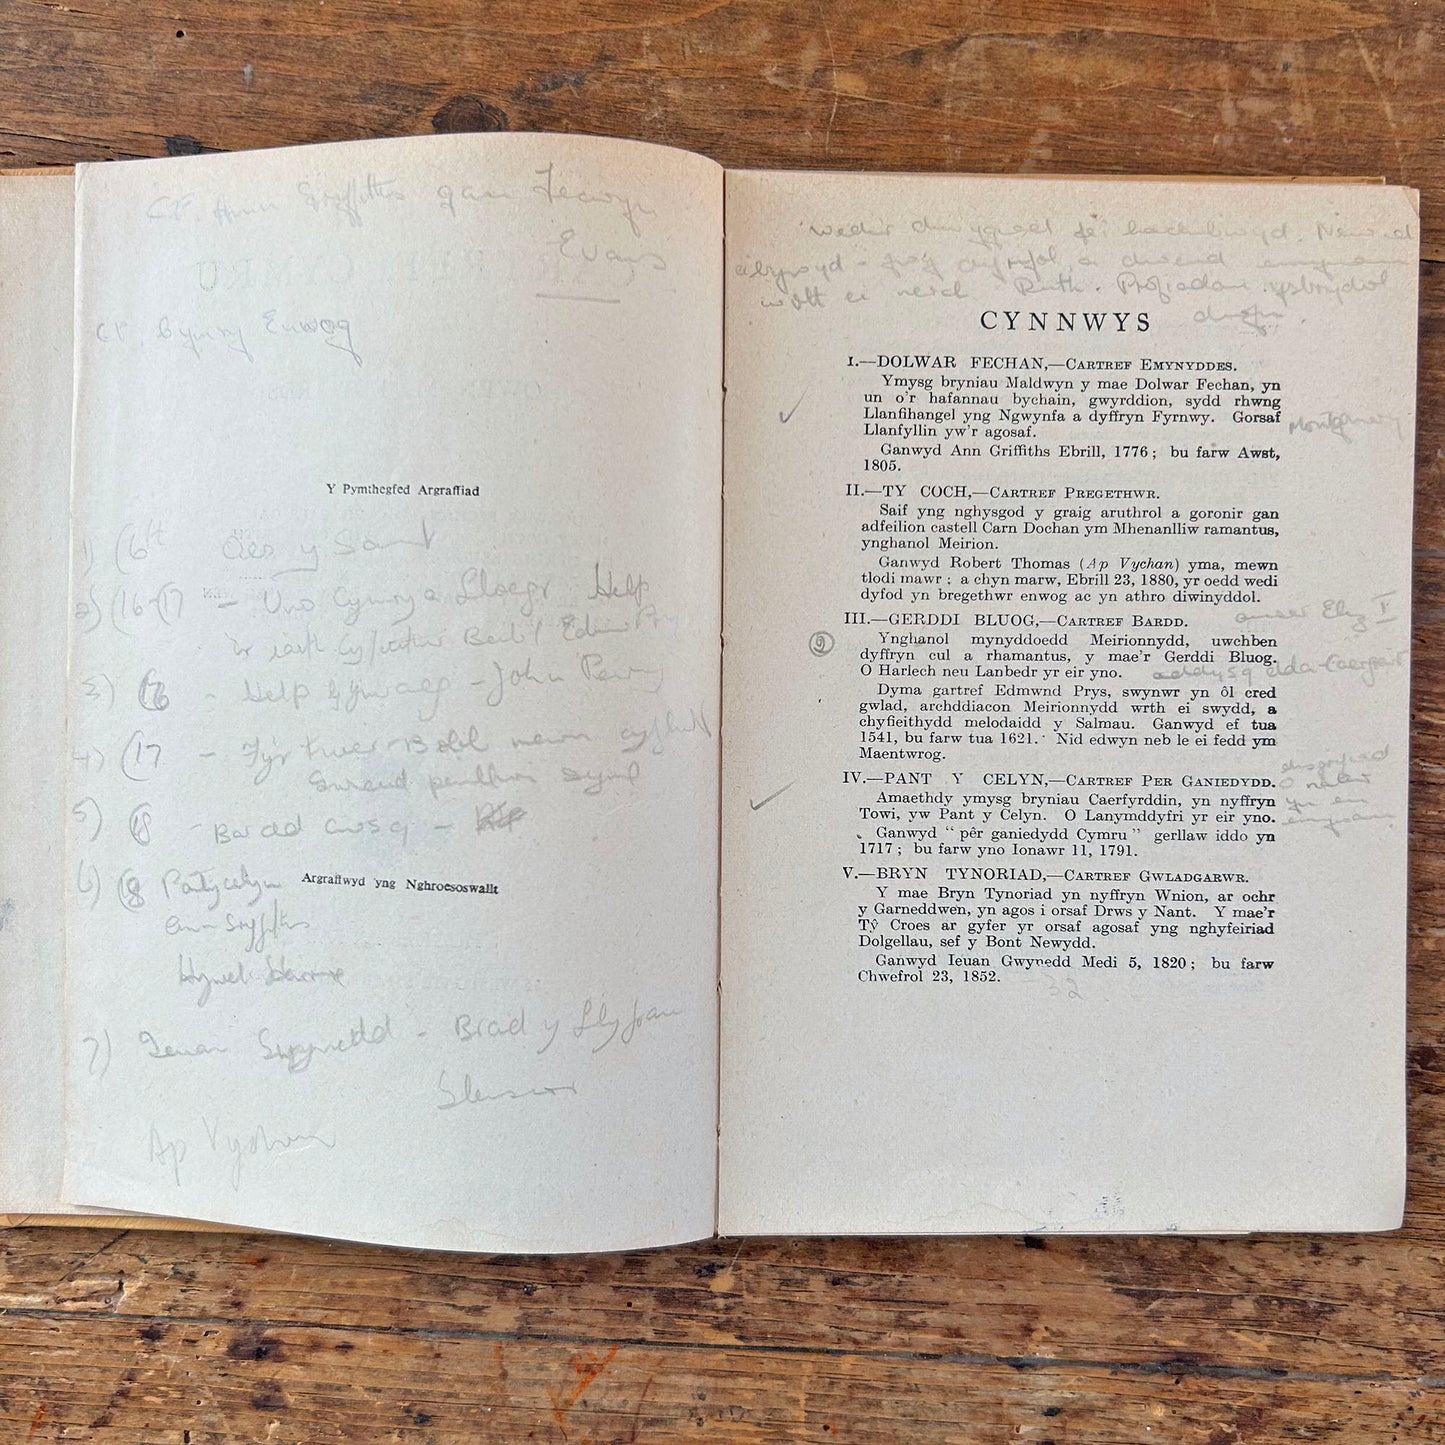 cf. Ann Griffiths gan
Evans
cf. Cymry Enwog
Y Pymthegfed Argraffiad
1) (6ed Oes y Saint
2) (16-17 - Uno Cymry a Lloegr Help
i'r iaith cyfieithu Beibl Edmwnd Prys
3) 16 - Help gymraeg - John Penry
4) (17 -
5) 18 - Bardd Cwsg -
6) 18 Pantycelyn
Argraffwyd yng Nghroesoswallt
Ann Griffiths
Hywel Harris
7) Ieuan Gwynedd - Brad y Llyfrau
Gleision
Ap Vychan
ei nerth Ruth. Profiadau ysbrydol
CYNNWYS
I.—DOLWAR FECHAN,—CARTREF EMYNYDDES.
Ymysg bryniau Maldwyn y mae Dolwar Fechan, yn
un o'r hafannau bychain, gwyrddion, sydd rhwng
Llanfihangel yng Ngwynfa a dyffryn Fyrnwy. Gorsaf
Montgomery
Llanfyllin yw'r agosaf.
Ganwyd Ann Griffiths Ebrill, 1776; bu farw Awst,
1805.
II.—TY COCH,—CARTREF PREGETHWR.
Saif yng nghysgod y graig aruthrol a goronir gan
adfeilion castell Carn Dochan ym Mhenanlliw ramantus,
ynghanol Meirion.
Ganwyd Robert Thomas (Ap Vychan) yma, mewn
tlodi mawr; a chyn marw, Ebrill 23, 1880, yr oedd wedi
dyfod yn bregethwr enwog ac yn athro diwinyddol.
amser Eliz I
III.—GERDDI BLUOG,—CARTREF BARDD.
Ynghanol mynyddoedd Meirionnydd, uwchben
dyffryn cul a rhamantus, y mae'r Gerddi Bluog.
O Harlech neu Lanbedr yr eir yno.
Dyma gartref Edmwnd Prys, swynwr yn ôl cred
gwlad, archddiacon Meirionnydd wrth ei swydd, a
chyfieithydd melodaidd y Salmau. Ganwyd ef tua
1541, bu farw tua 1621. Nid edwyn neb le ei fedd ym
Maentwrog.
IV.—PANT Y CELYN,—CARTREF PER GANIEDYDD.
Amaethdy ymysg bryniau Caerfyrddin, yn nyffryn
Towi, yw Pant y Celyn. O Lanymddyfri yr eir yno.
Ganwyd "pêr ganiedydd Cymru" gerllaw iddo yn
1717; bu farw yno Ionawr 11, 1791.
V.—BRYN TYNORIAD,—CARTREF GWLADGARWR.
Y mae Bryn Tynoriad yn nyffryn Wnion, ar ochr
y Garneddwen, yn agos i orsaf Drws y Nant. Y mae'r
Tŷ Croes ar gyfer yr orsaf agosaf yng nghyfeiriad
Dolgellau, sef y Bont Newydd.
Ganwyd Ieuan Gwynedd Medi 5, 1820; bu farw
Chwefrol 23, 1852.
32